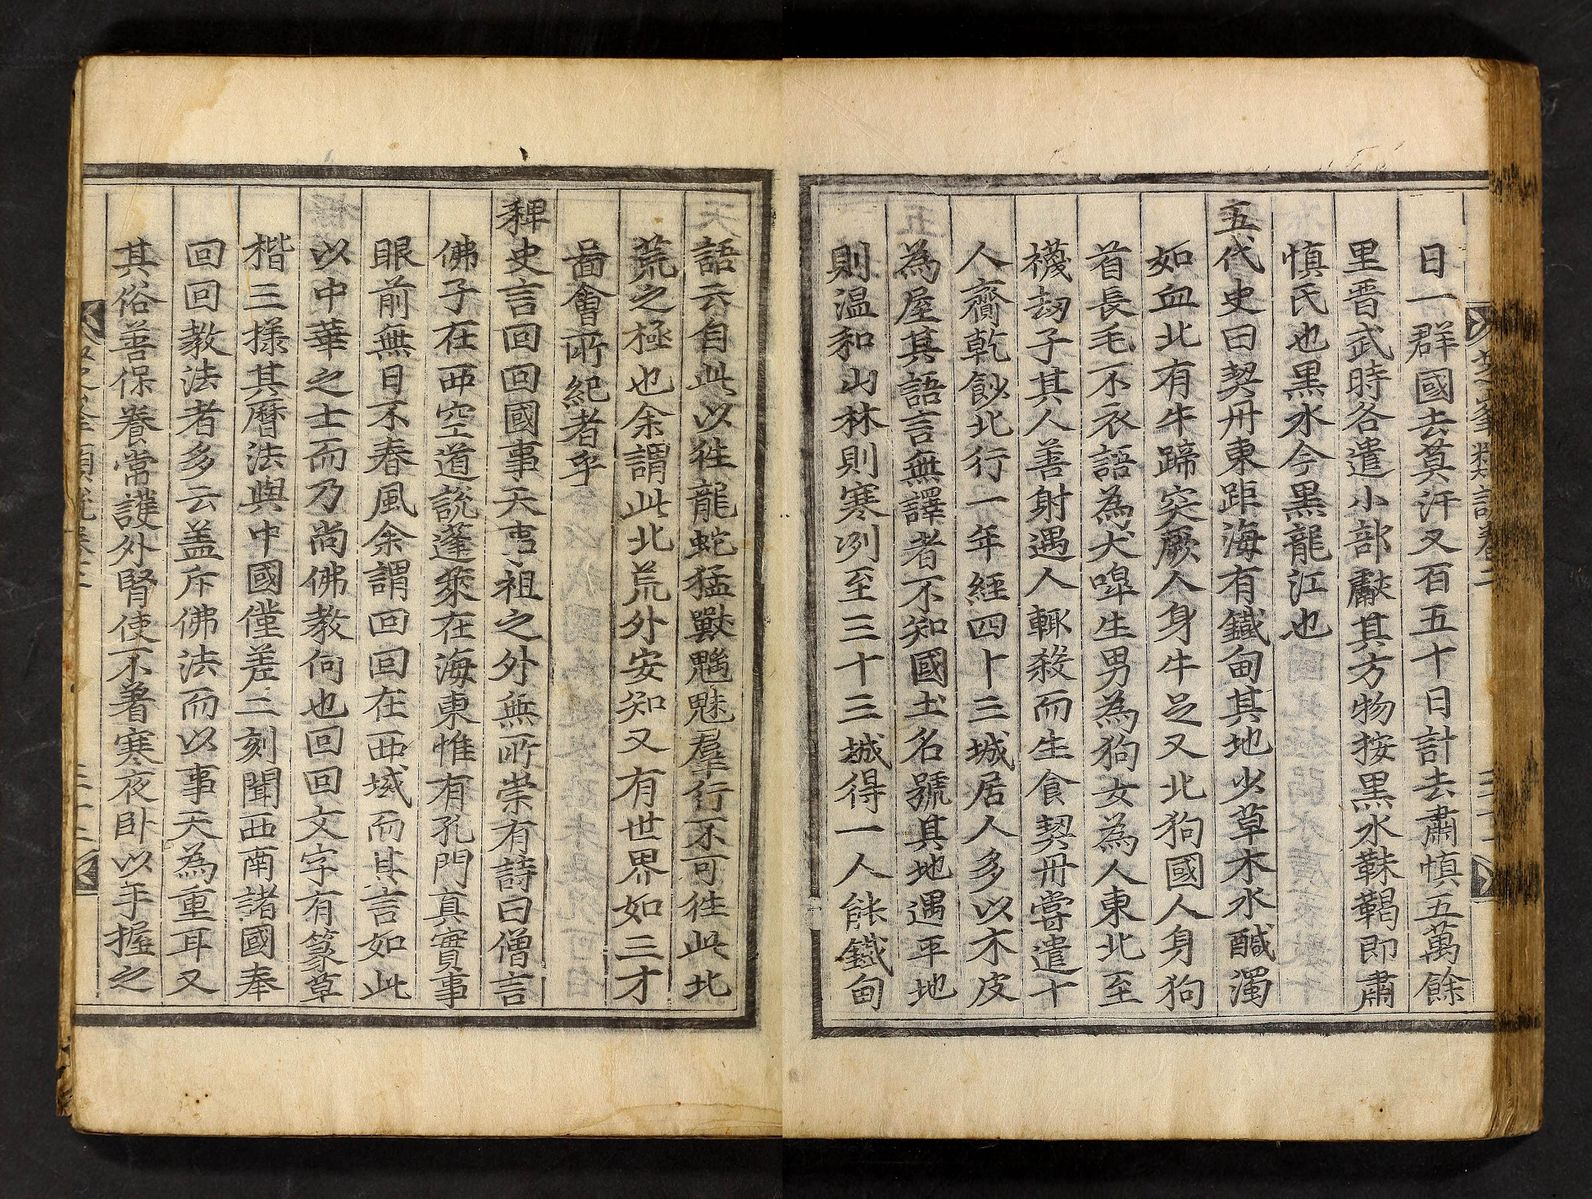 日一群國去莫汗又百五十日計去肅慎五萬餘
里晋武時各遣小部獻其方物按黑水靺鞨即肅
慎氏也黑水今黑龍江也
五代史曰契丹東距海有鐵甸其地少草木水醎濁
如血北有牛蹄突厥人身牛足又北狗國人身狗
首長毛不衣語為犬嘷生男為狗女為人東北至
襪刼子其人善射遇人輒殺而生食契丹嘗遣十
人齎乾飱北行一年経四十三城居人多以木皮
為屋其語言無譯者不知國土名號其地遇平地
則温和山林則寒冽至三十三城得一人能鐵甸
語云自此以徃龍蛇猛獸魑魅羣行不可徃此北
荒之極也余謂此北荒外安知又有世界如三才
啚會所紀者乎
稗史言回回國事天㫄祖之外無所崇有詩曰僧言
佛子在西空道説蓬萊在海東惟有孔門真實事
眼前無日不春風余謂回回在西域而其言如此
以中華之士而乃尚佛教何也回回文字有篆草
楷三樣其曆法與中國僅差二刻聞西南諸國奉
回回教法者多云盖斥佛法而以事天為重耳又
其俗善保養常護外腎使不著寒夜卧以手握之